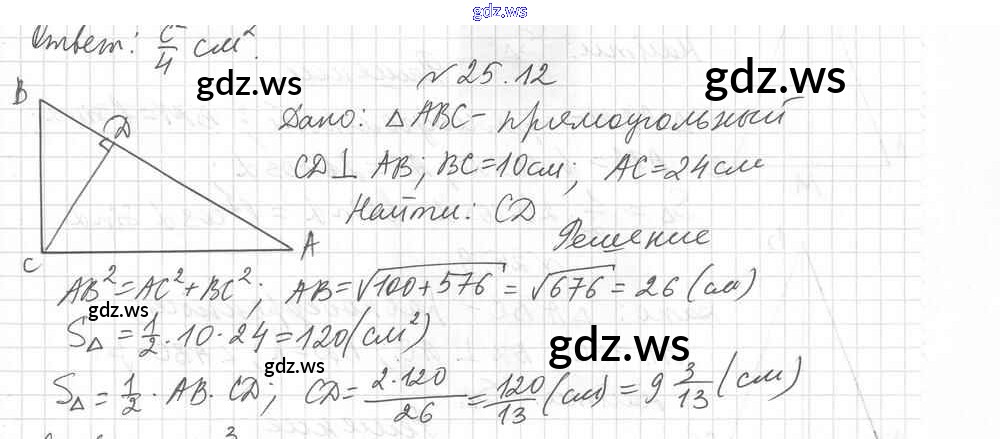 gdz.ws
Ответ: c²/4 см².
gdz.ws
gdz.ws
№25.12
B
D
Дано: △ABC - прямоугольный
CD⊥AB; BC=10см; AC=24см
Найти: CD
Решение
C
A
AB²=AC²+BC²; AB=√100+576=√676=26(см)
gdz.ws
S△=1/2·10·24=120(см²)
gdz.ws
gdz.ws
S△=1/2·AB·CD; CD=2·120/26=120/13(см)=9 3/13(см)